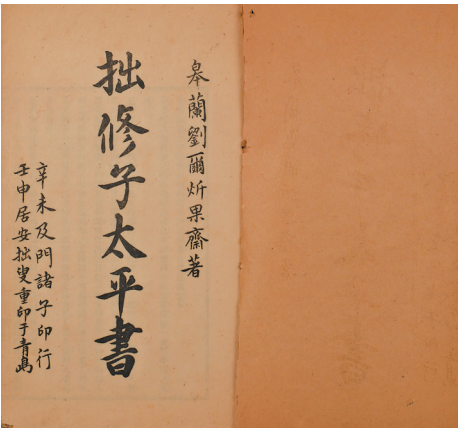 皋蘭劉爾炘果齋著
拙修子太平書
辛未及門諸子印行
壬申居安拙叟重印于青島